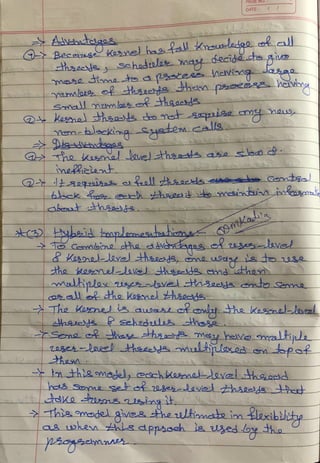 PAGE NO.
DATE: / /
→ Advantages
①→ Because kernel has full knowledge of all
threads, scheduler may decide to give
more time to a process having large
number of threads than process having
small number of threads
②→ kernel threads do not require any new
non-blocking system calls
→ Disadvantages
①→ The kernel level threads are slow &
inefficient.
②→ It requires a full thread control
block for each thread to maintain informa
about threads.
*(3) Hybrid Implementation
→ To combine the advantages of user-level
& Kernel-level threads, one way is to use
the kernel-level threads and then
multiplex user-level threads onto some
or all of the kernel threads.
→ The kernel is aware of only the kernel-level
threads & schedules those.
→ Some of those threads may have multiple
user-level threads multiplexed on top of
them.
→ In this model, each kernel-level thread
has some set of user-level threads that
take turns using it.
→ This model gives the ultimate in flexibility
as when this approach is used by the
programmer.